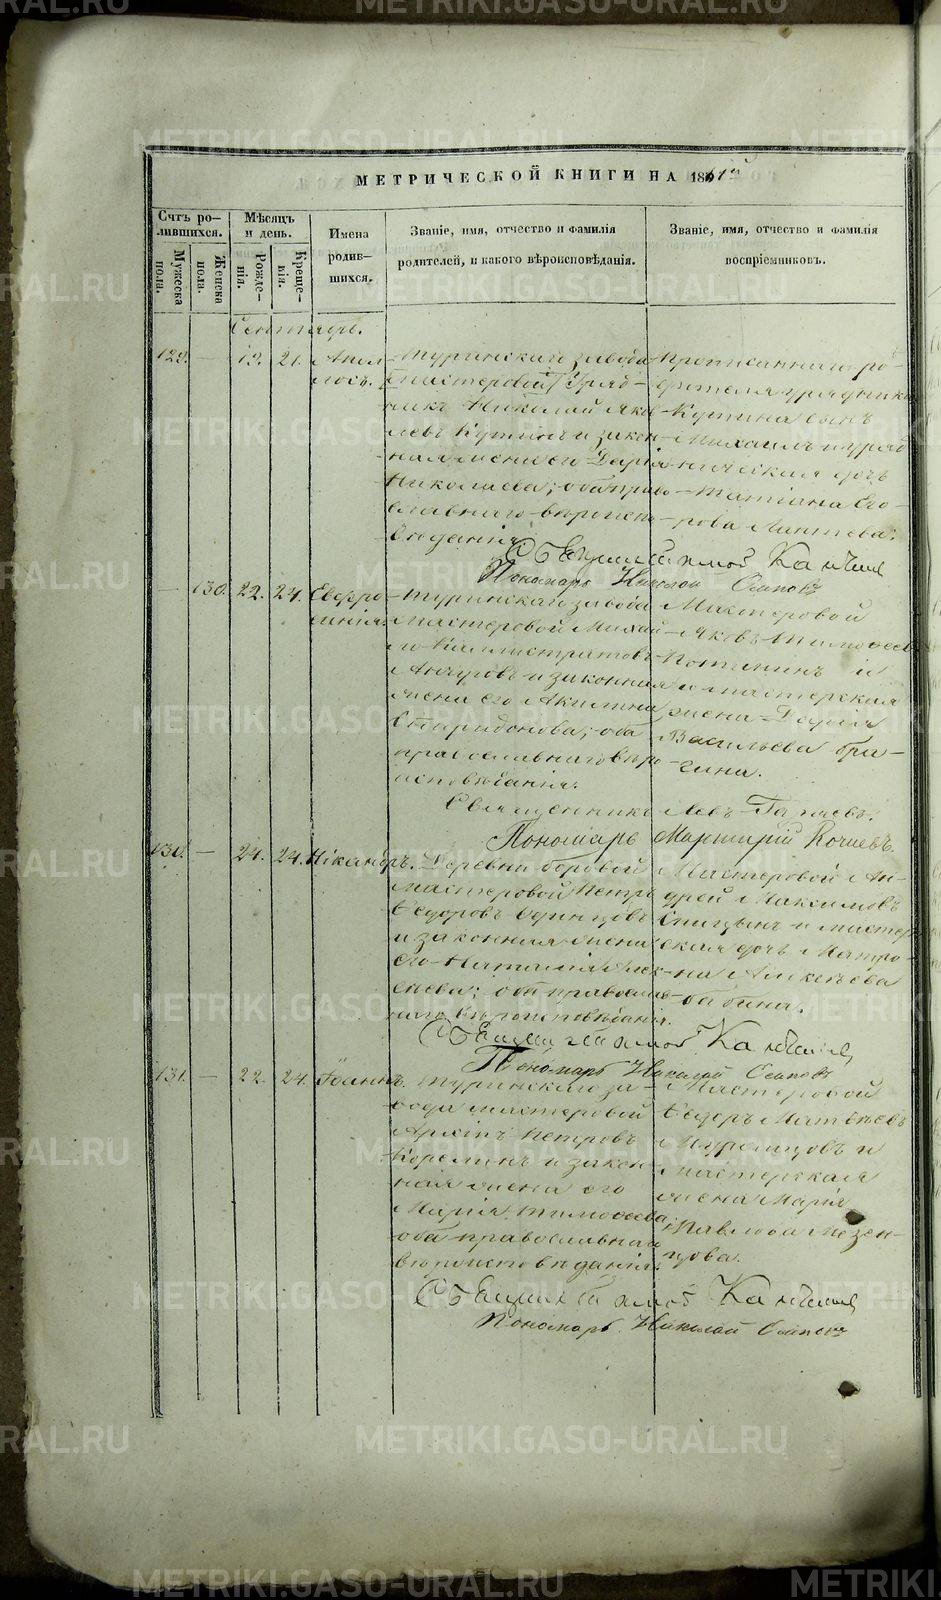 МЕТРИЧЕСКОЙ КНИГИ НА 1861й
Счтъ ро-
лившихся.
Мужеска
пола.
Женска
пола.
Мѣсяцъ
и день.
Рожде-
нія.
Креще-
нія.
Имена
родив-
шихся.
Званіе, имя, отчество и фамилія
родителей, и какого вѣроисповѣданія.
Званіе, имя, отчество и фамилія
воспріемниковъ.
Сентябрь.
129. — 12. 21.
Туринскаго завода
мастеровой
Николай Яков-
левъ Кутинъ и закон-
ная жена его Дарія
Николаева; оба право-
славнаго вѣроиспо-
вѣданія.
Прописаннаго ро-
дителя урядника
Кутина сынъ
Михаилъ и уряд-
ническая дочь
Татіана Его-
рова Лаптева.
Пономарь Николай Осиповъ
— 130. 22. 24. Евфро-
синія.
Туринскаго завода
мастеровой Михай-
ло Каллистратовъ
и законная
жена его Акилина
Спиридонова; оба
православнаго вѣро-
исповѣданія.
Мастеровой
Яковъ Тимофеевъ
и мастерская
жена Дарія
Васильева
Священникъ Левъ
Пономарь Мартирій
130. — 24. 24. Никаноръ.
Деревни Боровой
мастеровой Петръ
Ѳедоровъ Одинцовъ
и законная жена
его Наталія Алек-
сеева; оба православ-
наго вѣроисповѣданія.
Мастеровой Ан-
дрей Максимовъ
Спицынъ и мастер-
ская дочь Матро-
на Алексѣева
Бабина.
Пономарь Николай Осиповъ
131. — 22. 24. Іоаннъ.
Туринскаго за-
вода мастеровой
Архипъ Петровъ
Корелинъ и закон-
ная жена его
Марія Тимофеева
оба православнаго
вѣроисповѣданія.
Мастеровой
Ѳедоръ Матвѣевъ
и
мастерская
жена Марія
Павлова Мезен-
цова.
Пономарь Николай Осиповъ
METRIKI.GASO-URAL.RU